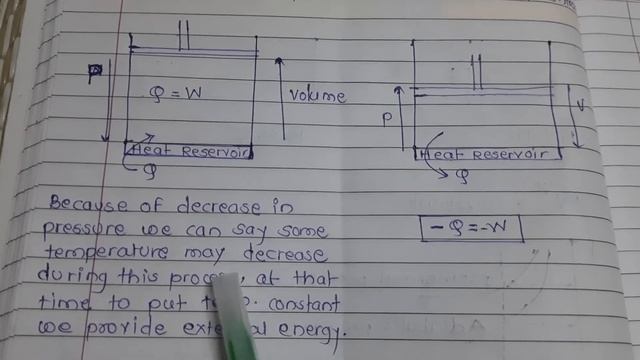 P
Q = W
Volume
Heat Reservoir
Q
P
V
Heat Reservoir
Q
Because of decrease in
pressure we can say some
temperature may decrease
during this at that
time to put constant
we provide energy.
- Q = - W